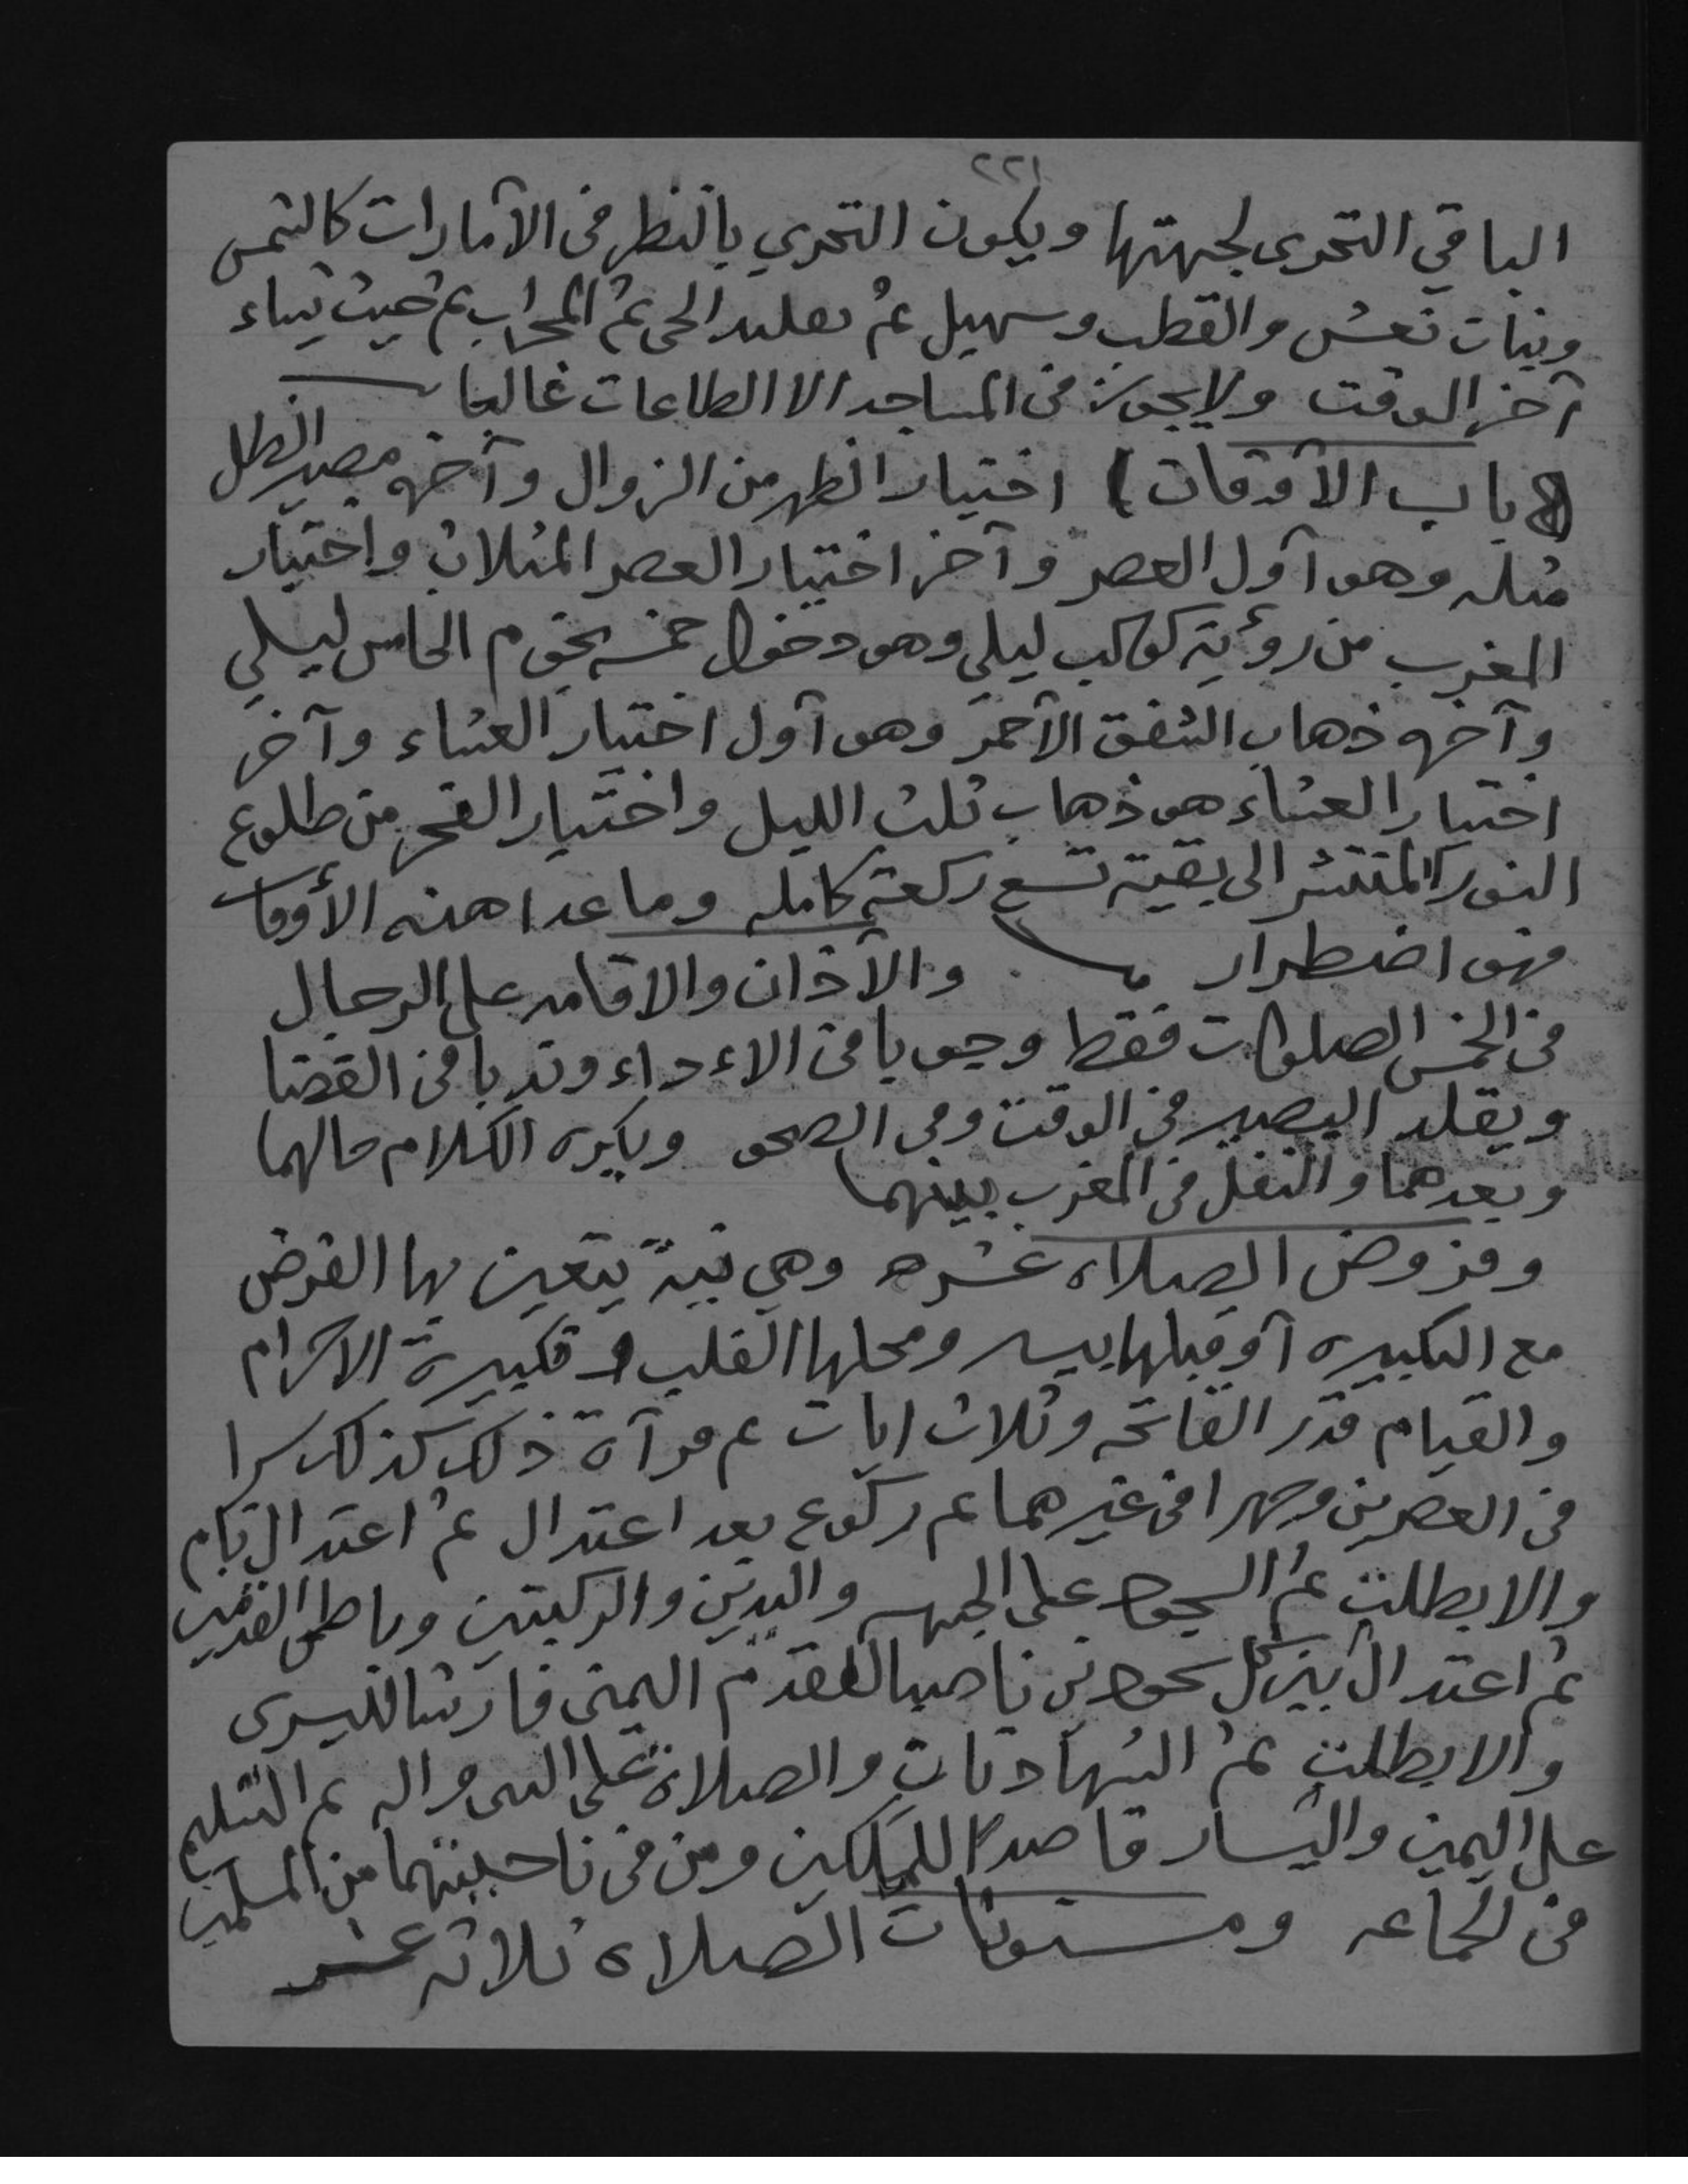 ٢٢١
الباقي التحرى لجهتها ويكون التحري بالنظر فى الآمارات كالشمس
وبنات نعش والقطب وسهيل ثم تقليد الحى ثم المحراب ثم حيث يشاء
آخر الوقت ولا يجوز فى المساجد الا الطاعات غالبا
(باب الآوقات) اختيار الظهر من الزوال وآخره مصير الظل
مثله وهو آول العصر وآخر اختيار العصر المثلان واختيار
المغرب من رؤية كوكب ليلي وهو دخول خمسه نجوم الخامس ليلي
وآخره ذهاب الشفق الآحمر وهو آول اختيار العشاء وآخر
اختيار العشاء هو ذهاب ثلث الليل واختيار الفجر من طلوع
النور المنتشر الى بقية تسع ركعة كامله وما عدا هذه الأوقات
فهو اضطرار والآذان والاقامه على الرجال
فى الخمس الصلوات فقط وجوبا فى الاءداء وندبا فى القضا
ويقلد البصير فى الوقت وفى الصحو ويكره الكلام حالهما
وبعدهما والنفل فى المغرب بينهما
وفروض الصلاه عشره وهي نية يتعين بها الفرض
مع التكبيره آو قبلها بيسير ومحلها القلب وتكبيرة الاحرام
والقيام قدر الفاتحه وثلاث ايات ثم قرآة ذلك كذلك سرا
فى العصرين وجهرا فى غيرهما ثم ركوع بعد اعتدال ثم اعتدال تام
والا بطلت ثم السجود على الجبهه واليدين والركبتين وباطن القدمين
ثم اعتدال بين كل سجودين ناصبا القدم اليمنى فارشا لليسرى
والا بطلت ثم الشهادتان والصلاة على النبى واله ثم التسليم
على اليمين واليسار قاصدا للملكين ومن فى ناحيتهما من المسلمين
فى الجماعه ومسنونات الصلاه ثلاثه عشر